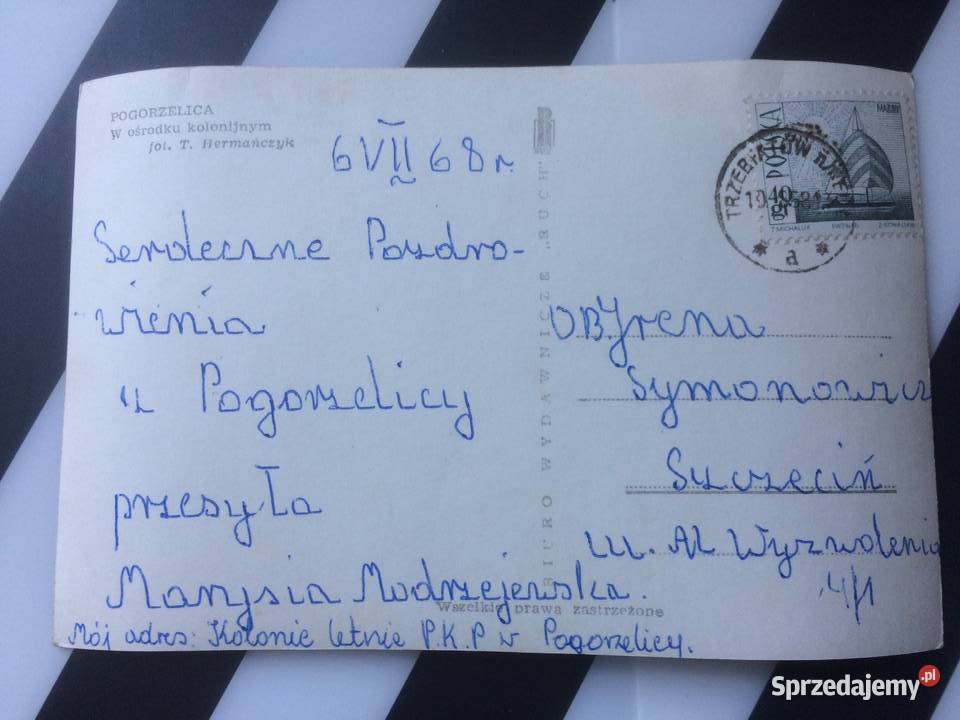 POGORZELICA
W ośrodku kolonijnym
fot. T. Hermańczyk
6 VII 68 r.
Serdeczne Pozdro-
wienia
z Pogorzelicy
przesyła
Marysia Modrzejewska.
Mój adres: Kolonie letnie P.K.P w Pogorzelicy.
BIURO WYDAWNICZE „RUCH"
Wszelkie prawa zastrzeżone
POLSKA
MAZURY
40 gr
T. MICHALUK
TRZEBIATÓW
a
OB Irena
Symonowicz
Szczeciń
ul. Al Wyzwolenia
4/1
Sprzedajemy.pl